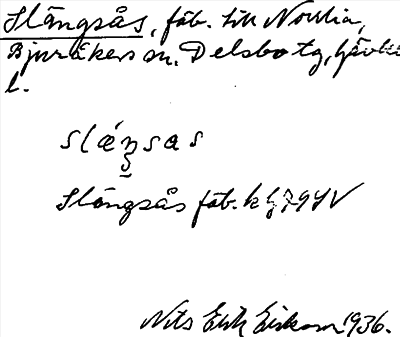 Slängsås, fäb. till Norrlia,
Bjuråkers sn, Delsbo tg, Gävle
l.
slǽŋsas
Slängsås fäb. k bj 794 V
Nils Erik Eriksson 1936.